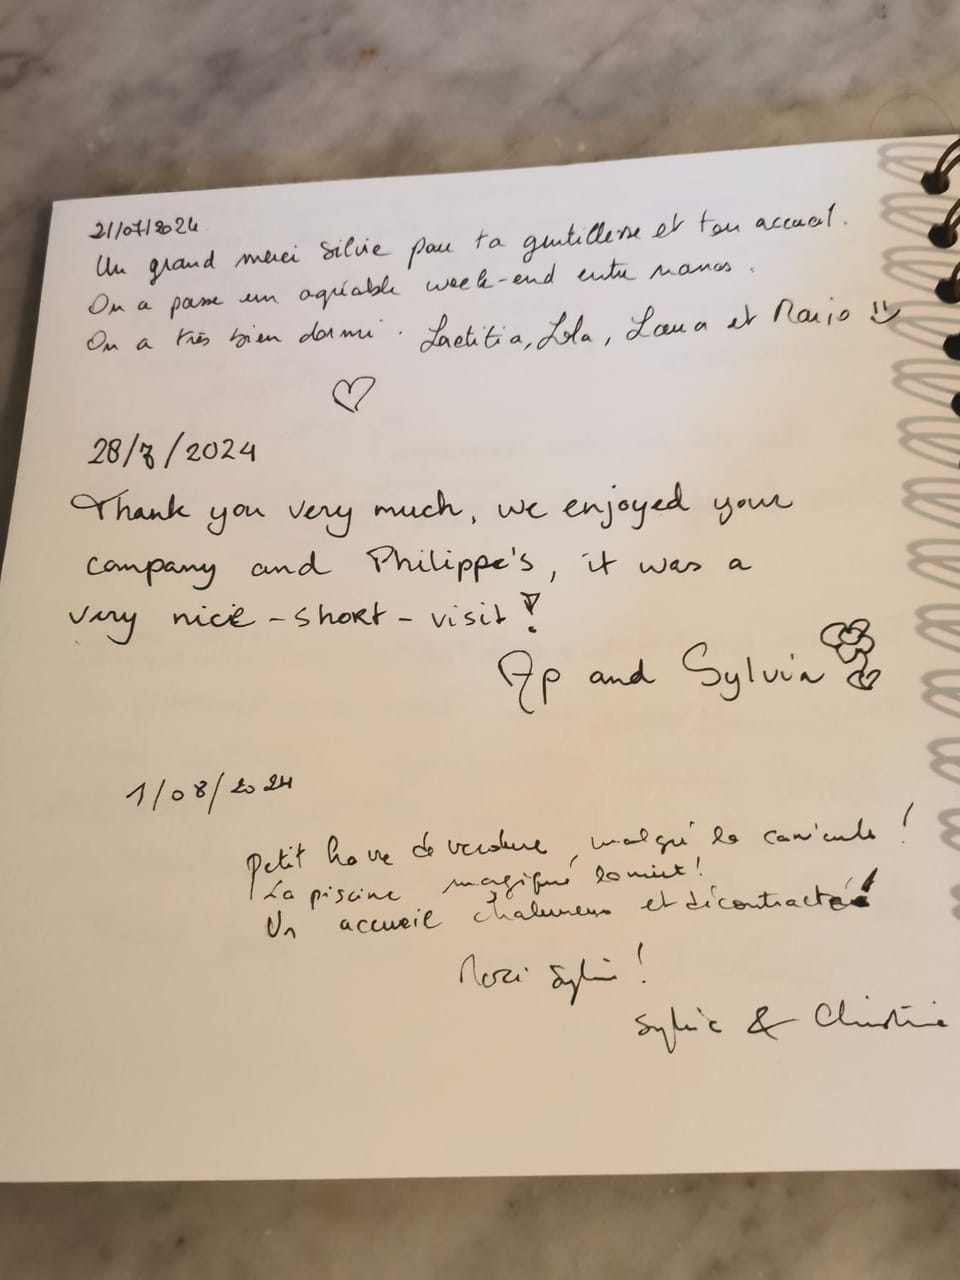 21/07/2024
Un grand merci Silvie pour ta gentillesse et ton accueil.
On a passé un agréable week-end entre nanas.
On a très bien dormi. Laetitia, Lola, Laura et Mario
28/7/2024
Thank you very much, we enjoyed your
company and Philippe's, it was a
very nice - short - visit!
Ap and Sylvia
1/08/2024
Petit havre de verdure, malgré la canicule!
La piscine magique la nuit!
Un accueil chaleureux et décontracté!
Merci Sylvie!
Sylvie & Christine